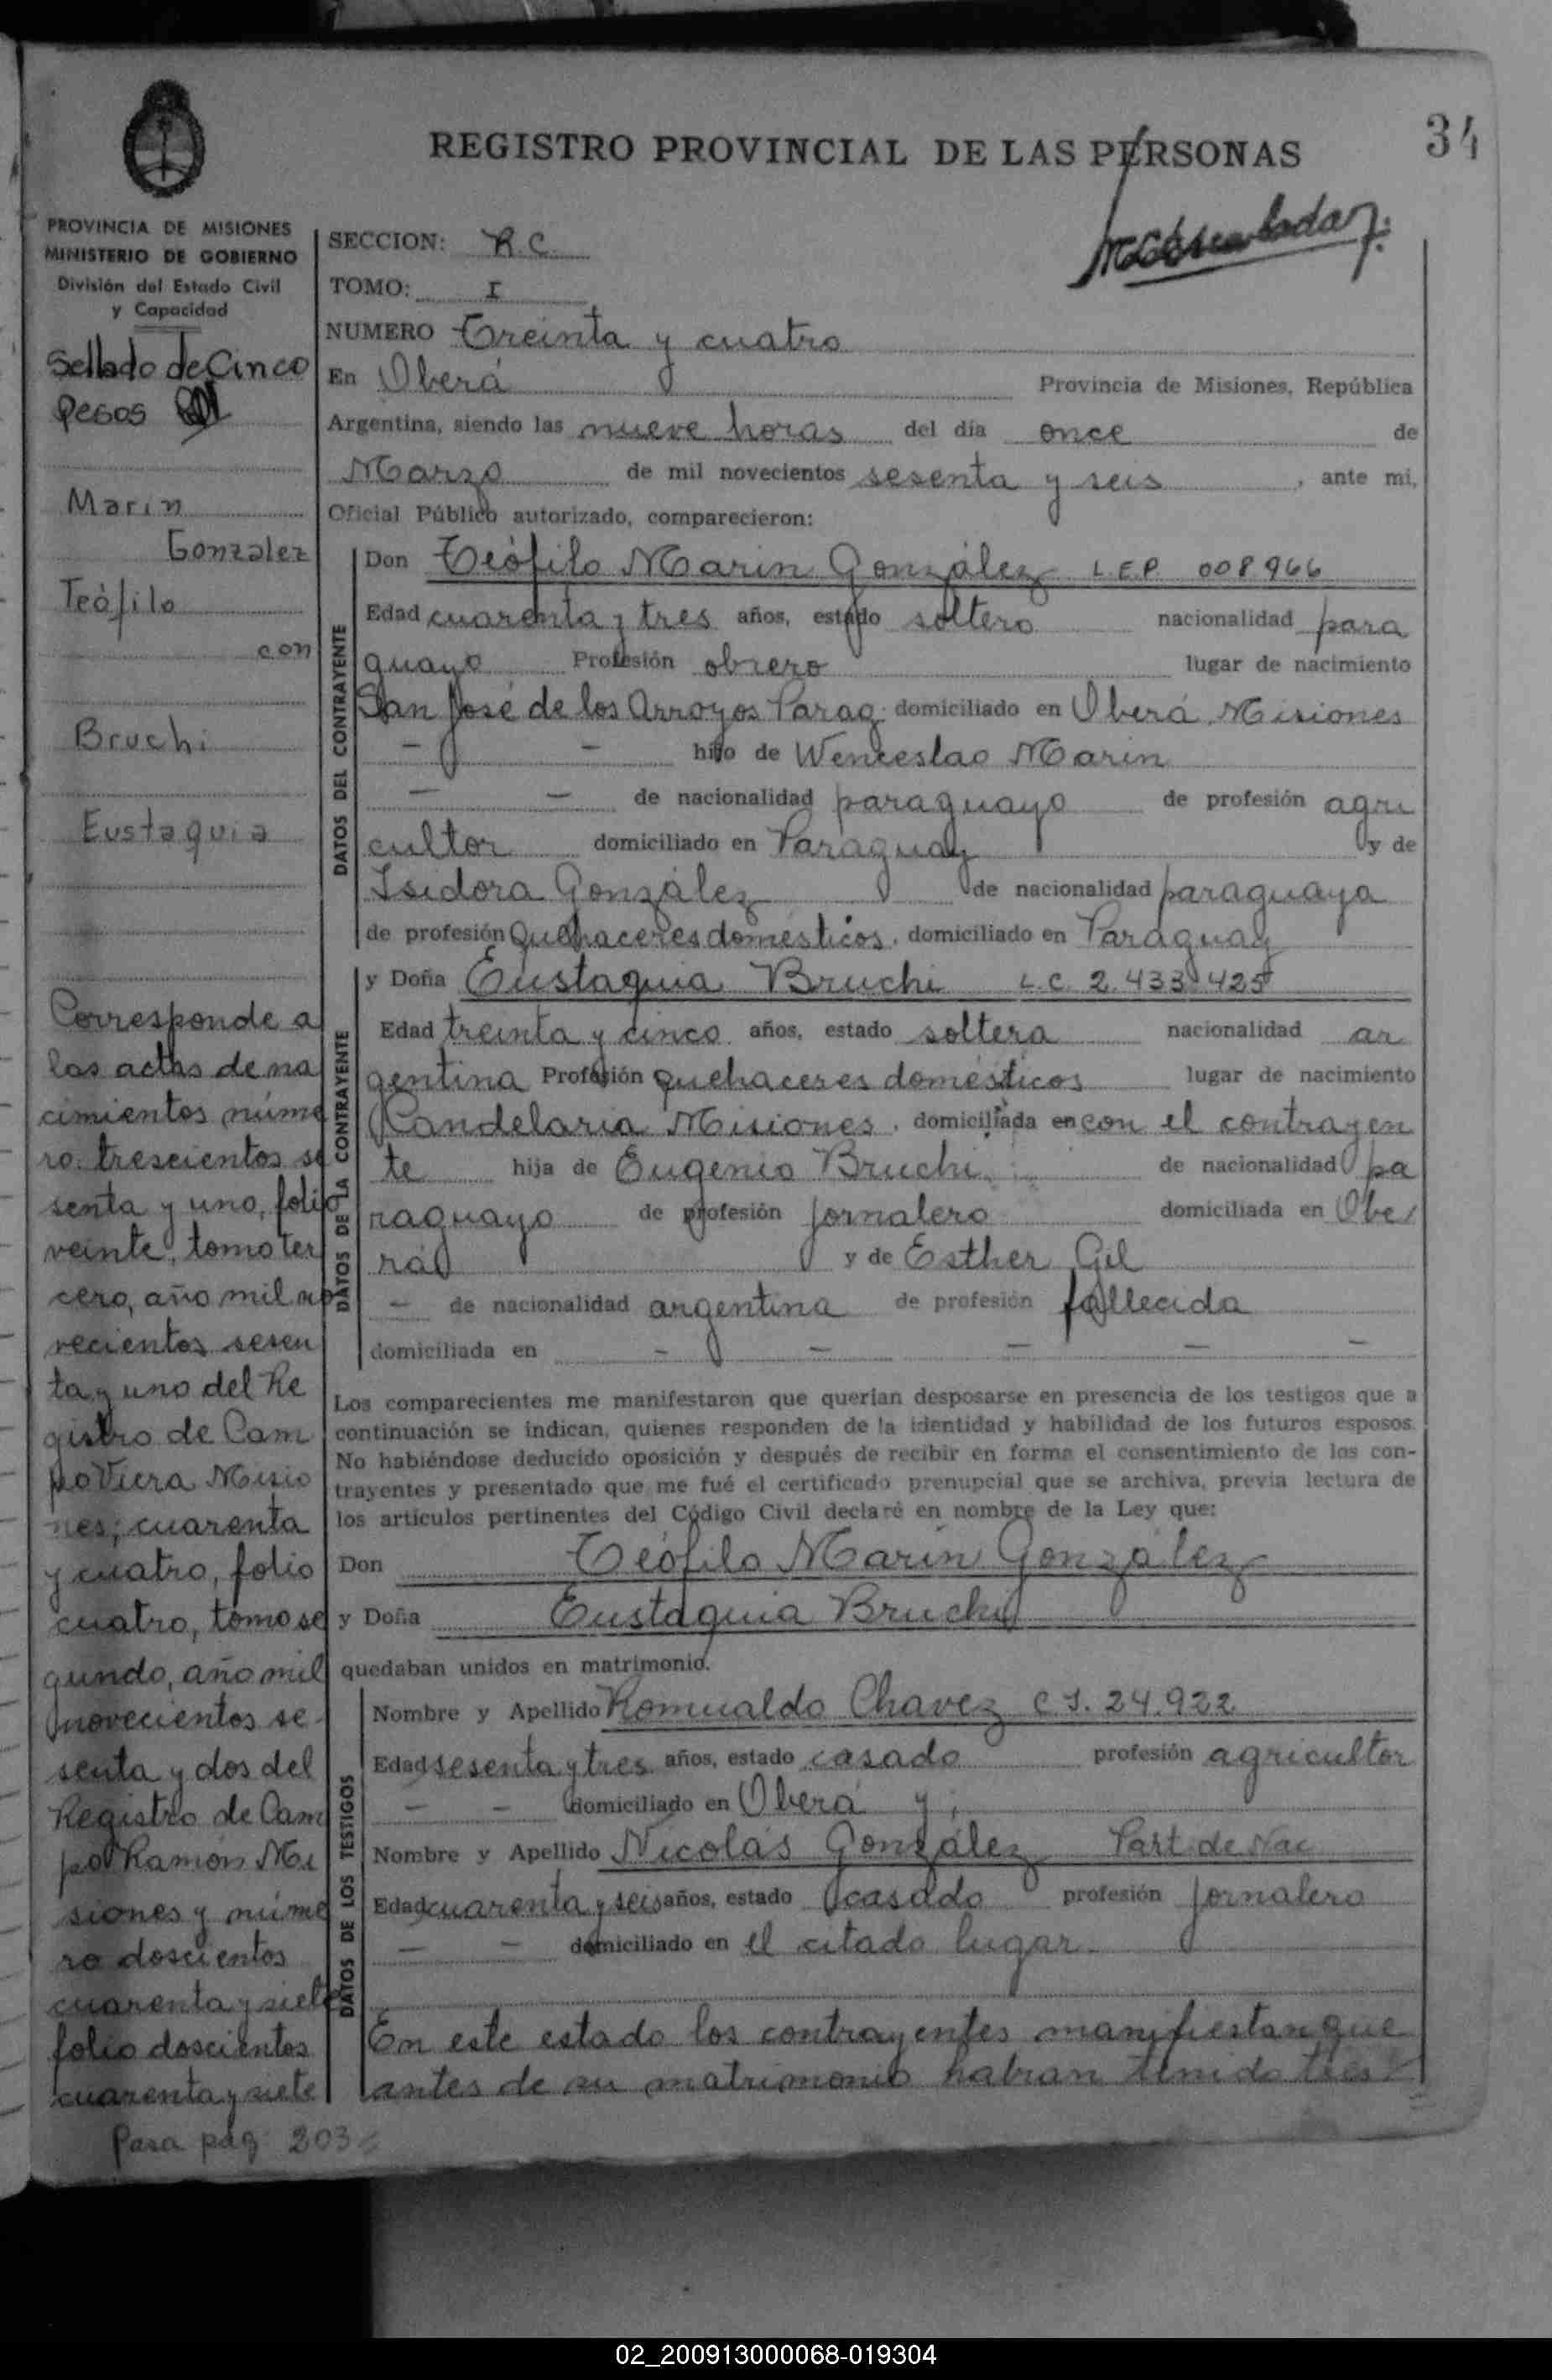 REGISTRO PROVINCIAL DE LAS PERSONAS
34
PROVINCIA DE MISIONES
MINISTERIO DE GOBIERNO
División del Estado Civil
y Capacidad
Sellado de Cinco
Pesos
Marin
Gonzalez
Teófilo
con
Bruchi
Eustaquia
Corresponde a
las actas de na
cimientos núme
ro trescientos se
senta y uno, folio
veinte, tomo ter
cero, año mil no
vecientos sesen
ta y uno del Re
gistro de Cam
po Viera Misio
nes; cuarenta
y cuatro, folio
cuatro, tomo se
gundo, año mil
novecientos se
senta y dos del
Registro de Cam
po Ramón Mi
siones y núme
ro doscientos
cuarenta y siete
folio doscientos
cuarenta y siete
Pasa pág. 203
SECCION: R.C.
TOMO: I
NUMERO Treinta y cuatro
En Oberá Provincia de Misiones, República
Argentina, siendo las nueve horas del día once de
Marzo de mil novecientos sesenta y seis, ante mi,
Oficial Público autorizado, comparecieron:
DATOS DEL CONTRAYENTE
Don Teófilo Marin González L.E.P. 008966
Edad cuarenta y tres años, estado soltero nacionalidad para
guayo Profesión obrero lugar de nacimiento
San José de los Arroyos Parag. domiciliado en Oberá Misiones
- - hijo de Wenceslao Marin
- - de nacionalidad paraguayo de profesión agri
cultor domiciliado en Paraguay y de
Isidora González de nacionalidad paraguaya
de profesión Quehaceres domésticos, domiciliado en Paraguay
DATOS DE LA CONTRAYENTE
y Doña Eustaquia Bruchi L.C. 2.433.425
Edad treinta y cinco años, estado soltera nacionalidad ar
gentina Profesión quehaceres domésticos lugar de nacimiento
Candelaria Misiones, domiciliada en con el contrayen
te hija de Eugenio Bruchi de nacionalidad pa
raguayo de profesión jornalero domiciliada en Obe
rá y de Esther Gil
- de nacionalidad argentina de profesión fallecida
domiciliada en - - - - -
Los comparecientes me manifestaron que querían desposarse en presencia de los testigos que a
continuación se indican, quienes responden de la identidad y habilidad de los futuros esposos.
No habiéndose deducido oposición y después de recibir en forma el consentimiento de los con-
trayentes y presentado que me fué el certificado prenupcial que se archiva, previa lectura de
los artículos pertinentes del Código Civil declaré en nombre de la Ley que:
Don Teófilo Marin González
y Doña Eustaquia Bruchi
quedaban unidos en matrimonio.
DATOS DE LOS TESTIGOS
Nombre y Apellido Romualdo Chavez C.I. 24.922
Edad sesenta y tres años, estado casado profesión agricultor
- - domiciliado en Oberá y;
Nombre y Apellido Nicolás González Part. de Nac
Edad cuarenta y seis años, estado casado profesión jornalero
- - domiciliado en el citado lugar
En este estado los contrayentes manifiestan que
antes de su matrimonio habian tenido tres
02_200913000068-019304